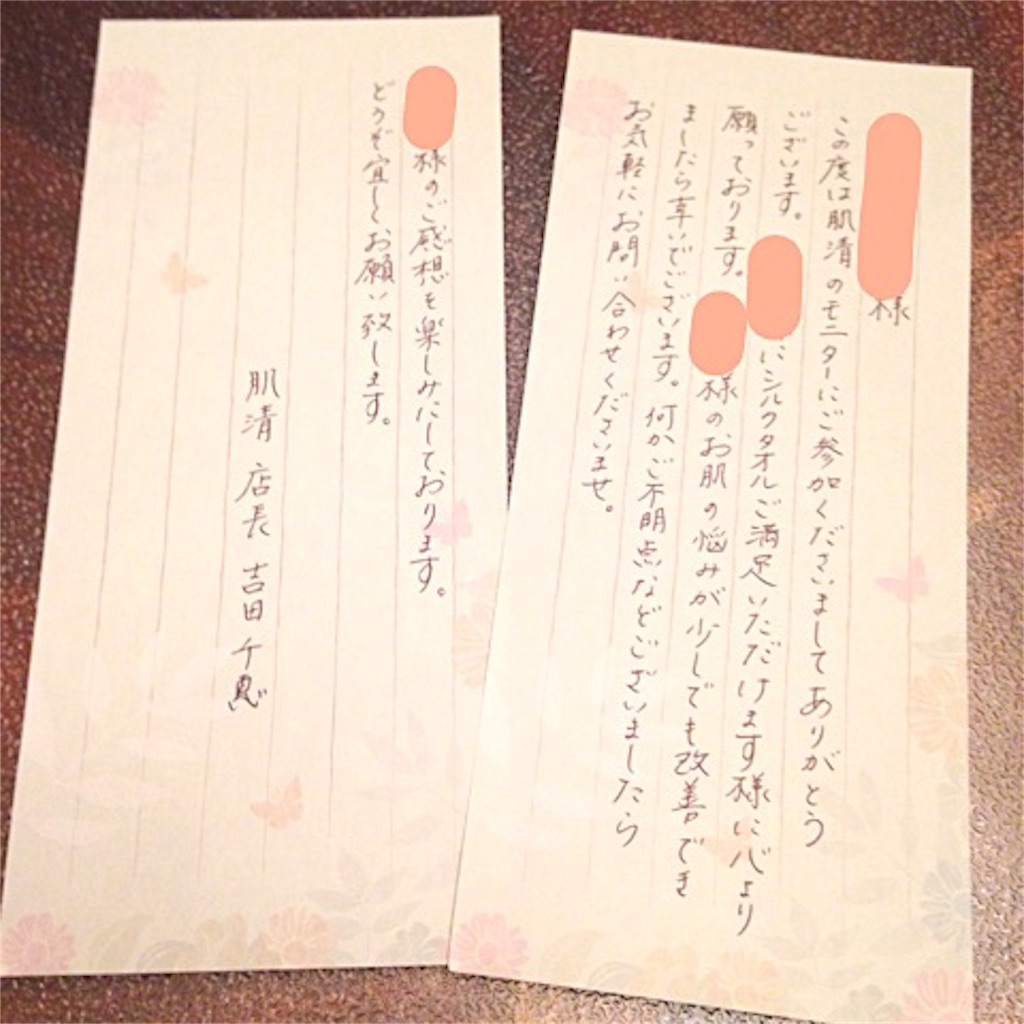 様
この度は肌清のモニターにご参加くださいましてありがとう
ございます。
にシルクタオルご満足いただけます様に心より
願っております。
様のお肌の悩みが少しでも改善でき
ましたら幸いでございます。何かご不明点などございましたら
お気軽にお問い合わせくださいませ。
様のご感想を楽しみにしております。
どうぞ宜しくお願い致します。
肌清 店長 吉田 千恵